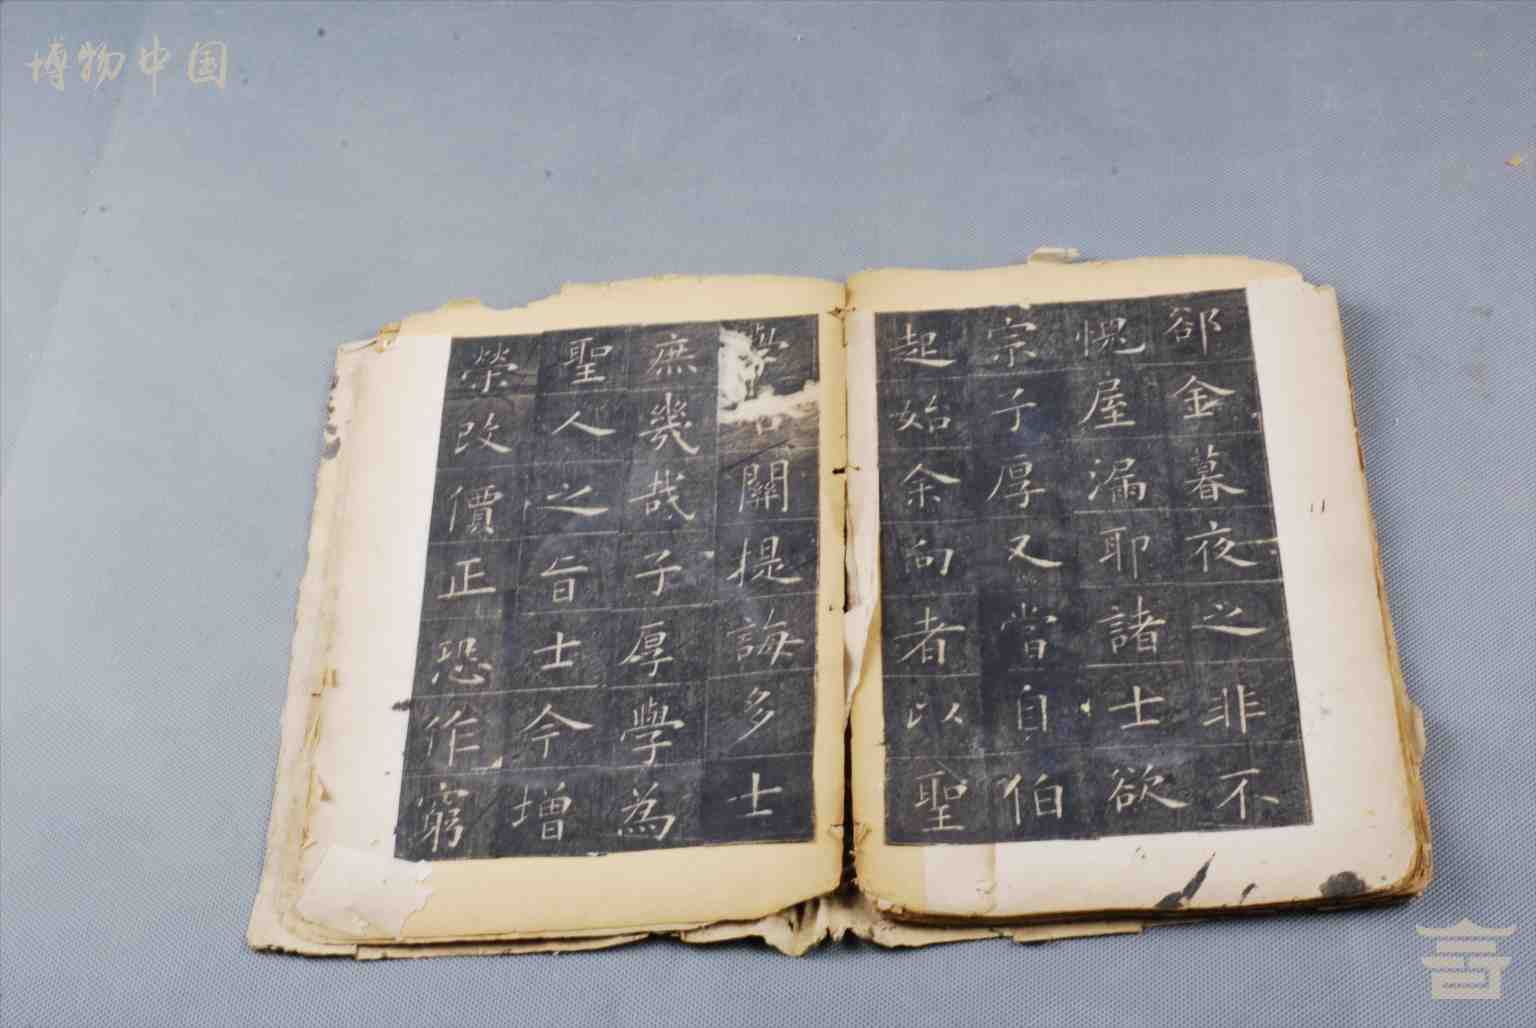 博物中国
郤金暮夜之非不
愧屋漏耶諸士欲
宗子厚又當自伯
起始余向者以聖
學關提誨多士
庶幾哉子厚學為
聖人之旨士今增
榮改價正恐作窮